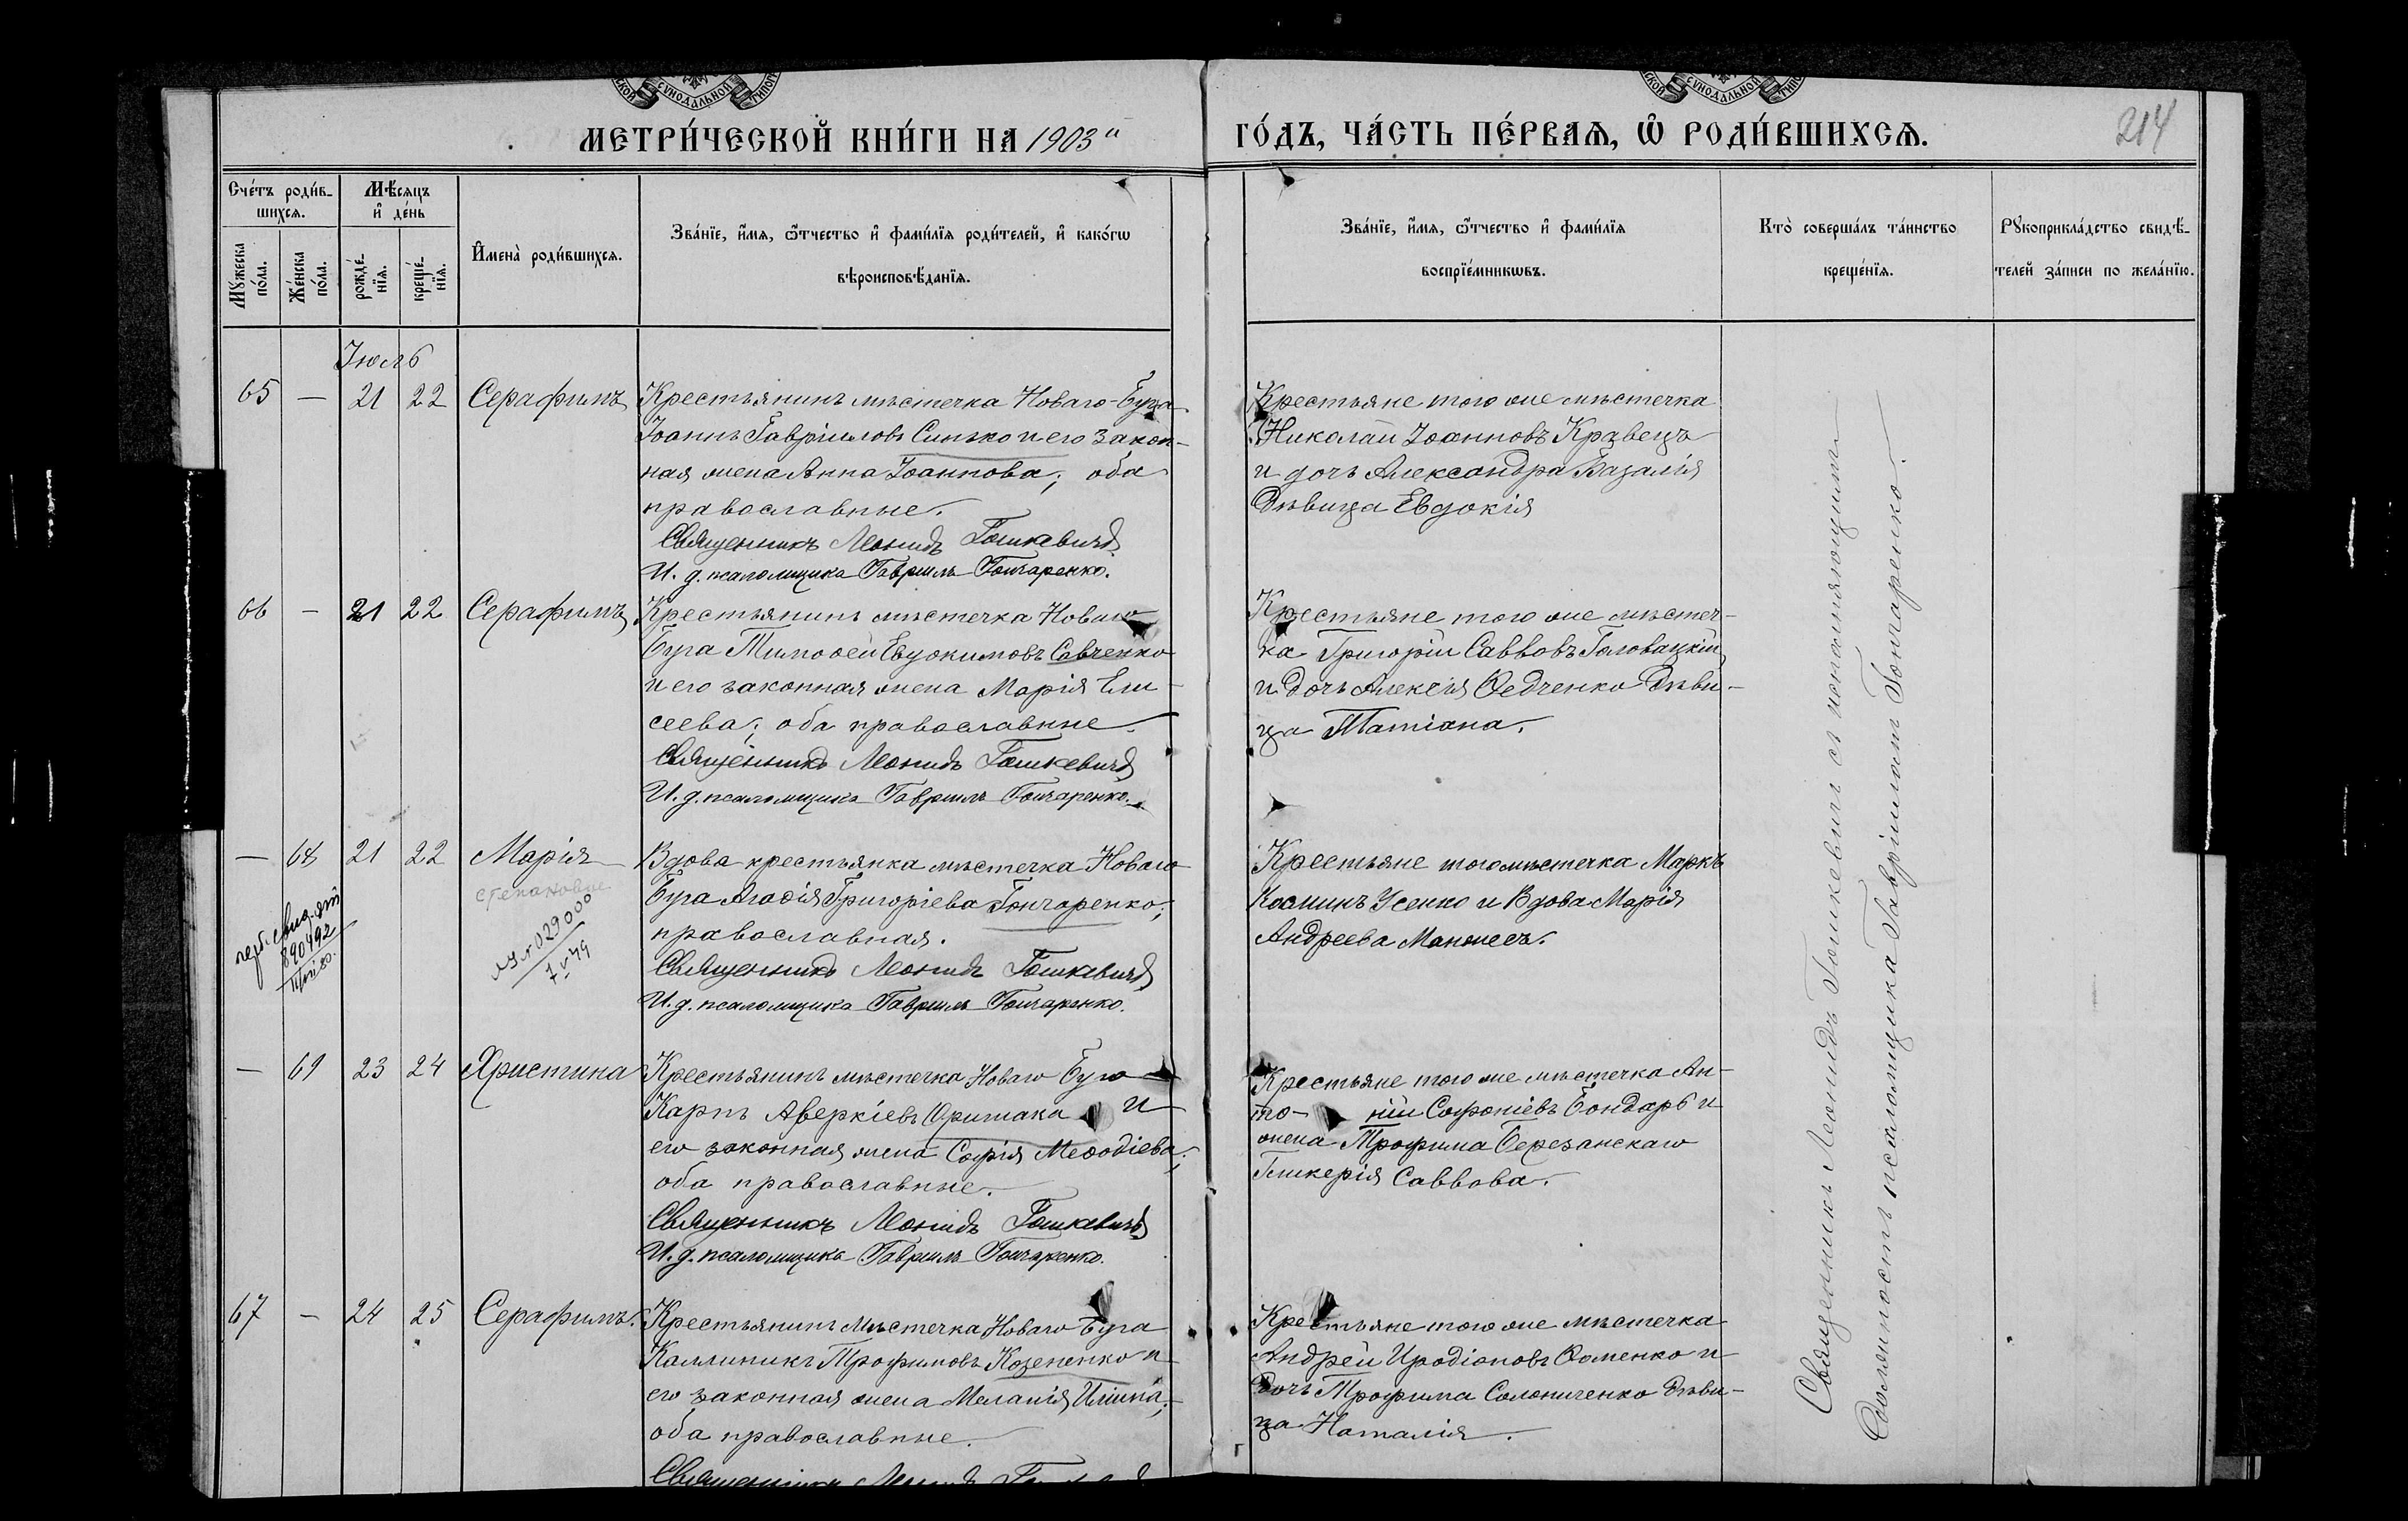 МЕТРИ́ЧЕСКОЙ КНИ́ГИ НА 1903й
ГО́ДЪ, ЧА́СТЬ ПЕ́РВАѦ, Ѡ҆ РОДИ́ВШИХСѦ.
214
Сче́тъ роди́в-
шихсѧ.
Мѣ́сяцъ
и҆ де́нь
Мꙋ́жеска
по́ла.
Же́нска
по́ла.
рожде́-
нїѧ.
креще́-
нїѧ.
И҆мена̀ роди́вшихсѧ.
Зва́нїе, и҆́мѧ, ѻ҆́тчество и҆ фами́лїѧ роди́телей, и҆ како́гѡ
вѣроисповѣ́данїѧ.
Зва́нїе, и҆́мѧ, ѻ҆́тчество и҆ фами́лїѧ
воспрїе́мникѡвъ.
Кто̀ соверша́лъ та́инство
креще́нїѧ.
Рꙋкоприкла́дство свидѣ́-
телей за́писи по жела́нїю.
Іюль
65 — 21 22 Серафимъ
Крестьянинъ мѣстечка Новаго-Буга
Іоаннъ Гавріиловъ Синько и его закон-
ная жена Анна Іоаннова; оба
православные.
Священникъ Леонидъ Гошкевичъ
И. д. псаломщика Гавриилъ Гончаренко.
Крестьяне того же мѣстечка
Николай Іоанновъ Кравецъ
и дочь Александра Базалія
дѣвица Евдокія
66 — 21 22 Серафимъ
Крестьянинъ мѣстечка Новаго
Буга Тимоѳей Евдокимовъ Савченко
и его законная жена Марія Ели-
сеева; оба православные.
Священникъ Леонидъ Гошкевичъ
И. д. псаломщика Гавриилъ Гончаренко.
Крестьяне того же мѣстеч-
ка Григорій Савво́въ Головацкій
и дочь Алексія Ѳедченко дѣви-
ца Татіана.
— 68 21 22 Марія
степановне
029000
890492
Вдова крестьянка мѣстечка Новаго
Буга Агаѳія Григоріева Гончаренко;
православная.
Священникъ Леонидъ Гошкевичъ
И. д. псаломщика Гавриилъ Гончаренко.
Крестьяне того мѣстечка Маркъ
Косминъ Усенко и вдова Марія
Андреева Манжесъ.
— 69 23 24 Христина
Крестьянинъ мѣстечка Новаго Буга
Карпъ Аверкіевъ Оришака и
его законная жена Софія Меѳодіева;
оба православные.
Священникъ Леонидъ Гошкевичъ
И. д. псаломщика Гавриилъ Гончаренко.
Крестьяне того же мѣстечка Ан-
то- ній Софоніевъ Бондарь и
жена Трофима Березанскаго
Гликерія Саввова.
67 — 24 25 Серафимъ.
Крестьянинъ мѣстечка Новаго Буга
Каллиникъ Трофимовъ Козененко и
его законная жена Меланія Ильина;
оба православные.
Священникъ Леонидъ
Крестьяне того же мѣстечка
Андрей Иродіоновъ Ѳоменко и
дочь Трофима Солониченко дѣви-
ца Наталія.
Священникъ Леонидъ Гошкевичъ съ исполняющимъ
должность псаломщика Гавріиломъ Гончаренко.